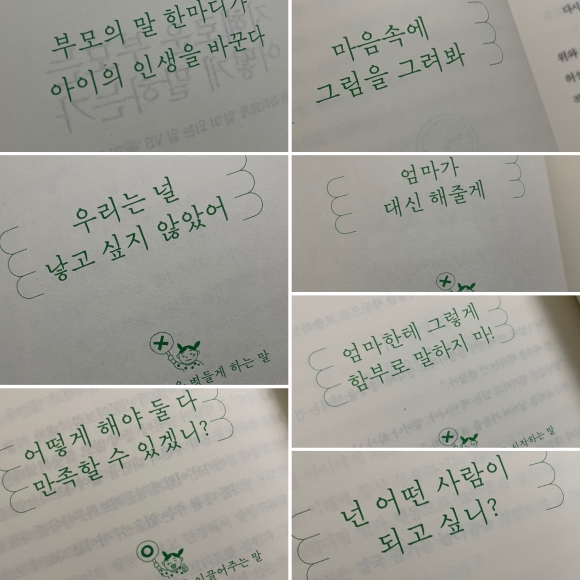 부모의 말 한마디가
아이의 인생을 바꾼다
마음속에
그림을 그려봐
다시
위와
우리는 널
낳고 싶지 않았어
병들게 하는 말
엄마가
대신 해줄게
엄마한테 그렇게
함부로 말하지 마!
시작하는 말
어떻게 해야 둘 다
만족할 수 있겠니?
이끌어주는 말
넌 어떤 사람이
되고 싶니?